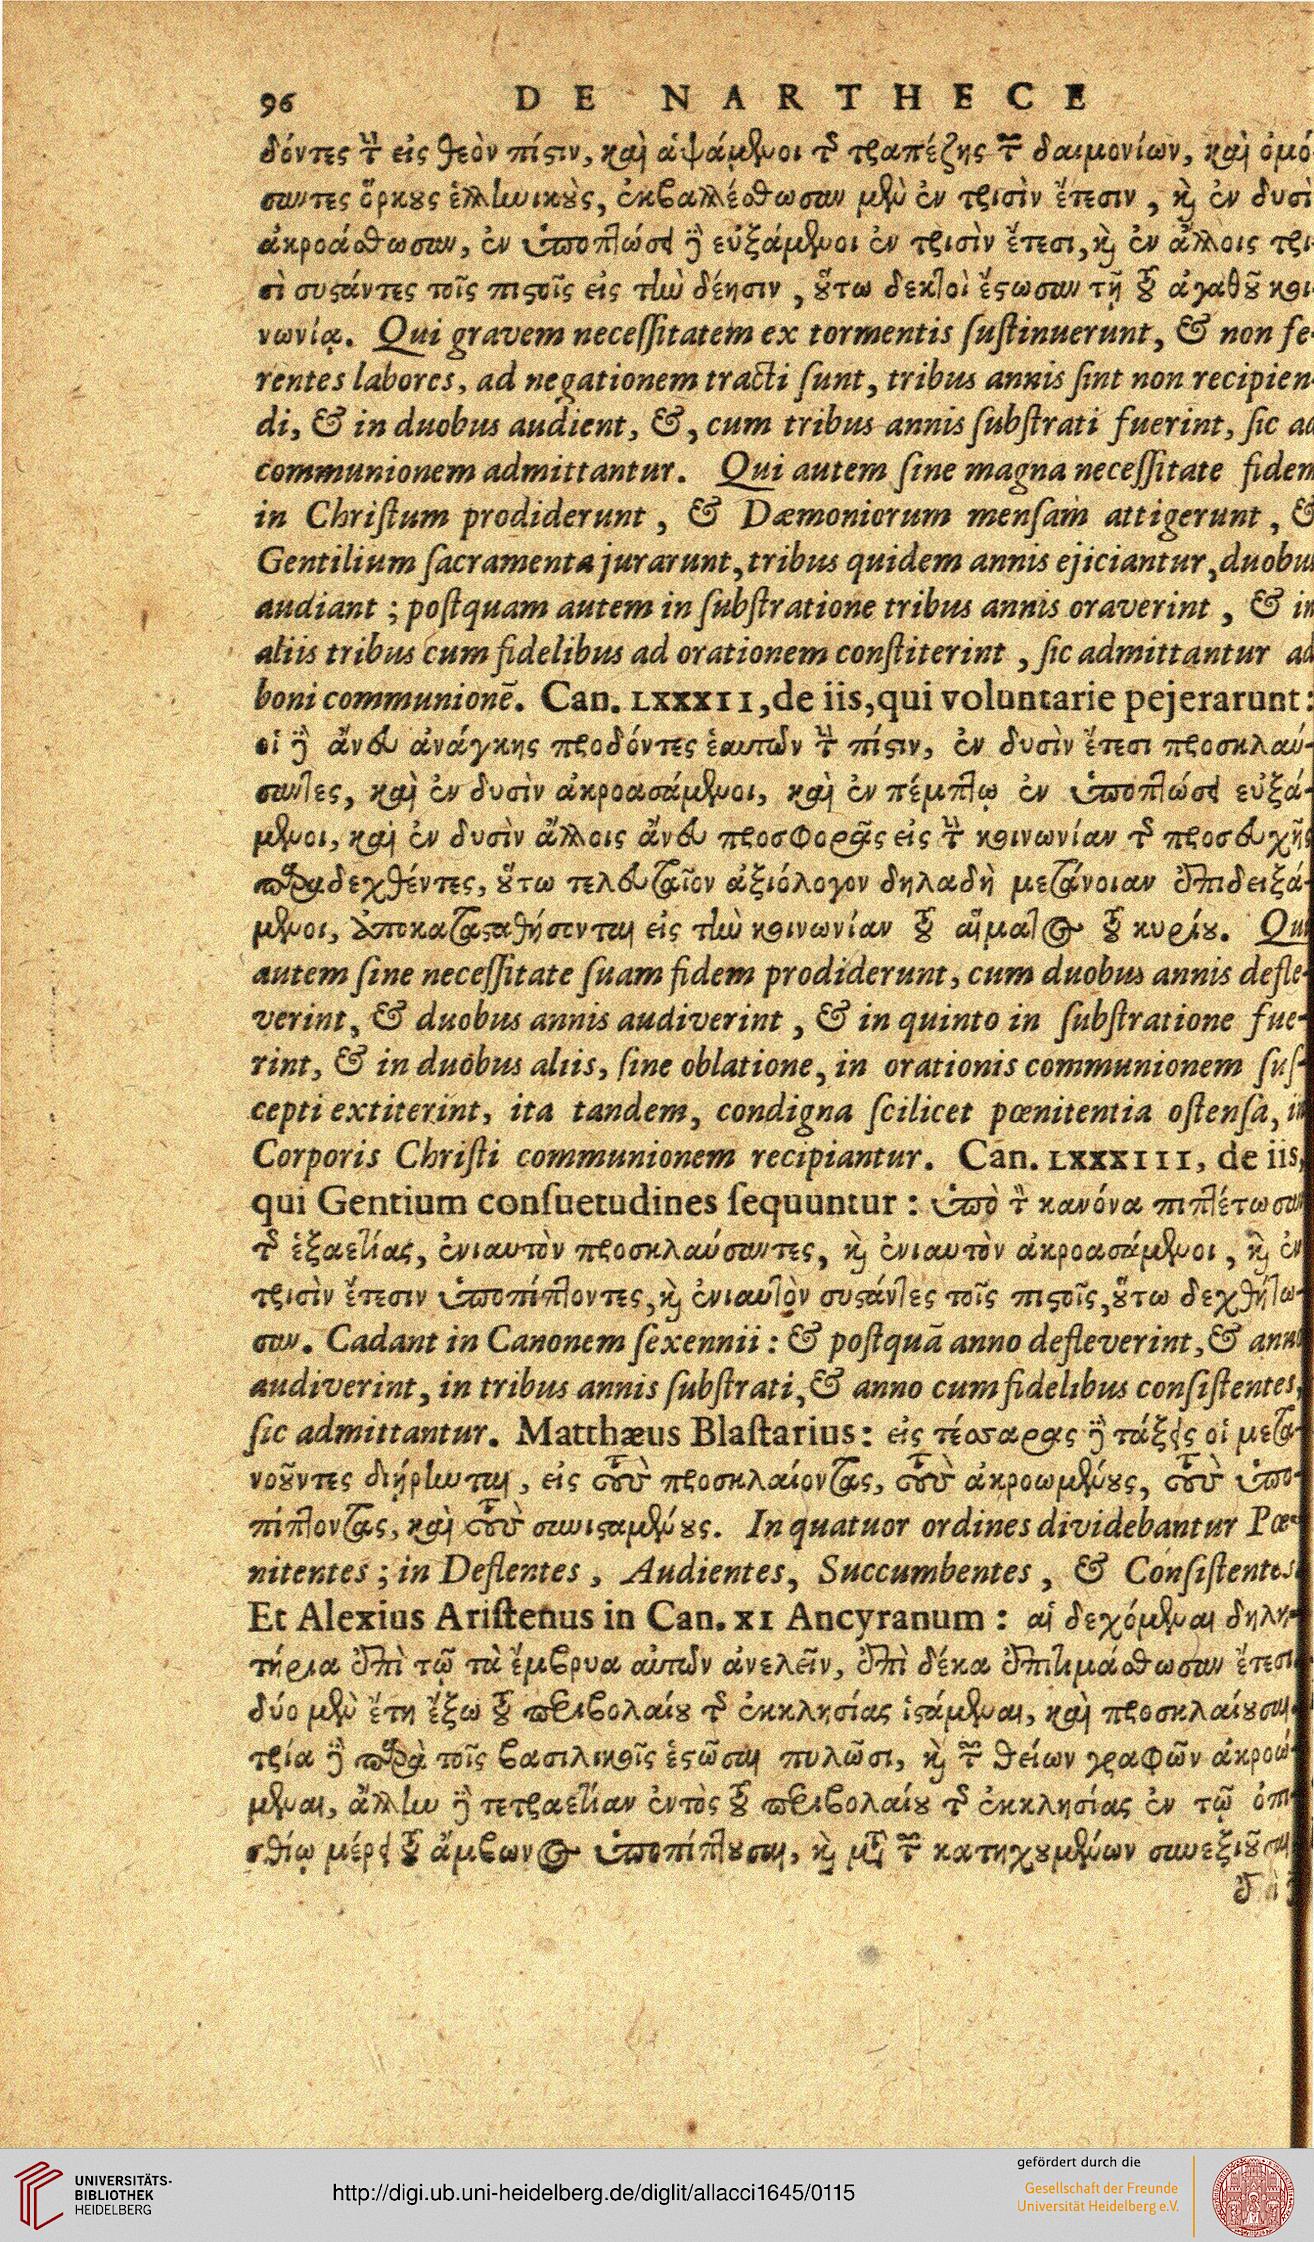 96 DE NARTHECE
δόντες τὴν εἰς θεὸν πίστιν, καὶ ἁψάμενοι τῆς τραπέζης τῶν δαιμονίων, καὶ ὀμό-
σαντες ὅρκους ἑλληνικοὺς, ἐκβαλλέσθωσαν μὲν ἐν τρισὶν ἔτεσιν, καὶ ἐν δυσὶ
ἀκροάσθωσαν, ἐν ὑποπτώσει δὲ εὐξάμενοι ἐν τρισὶν ἔτεσι, καὶ ἐν ἄλλοις τρι-
σὶ συστάντες τοῖς πιστοῖς εἰς τὴν δέησιν, οὕτω δεκτοὶ ἔστωσαν τῇ τοῦ ἀγαθοῦ κοι-
νωνίᾳ. Qui gravem neceſſitatem ex tormentis ſuſtinuerunt, & non fe-
rentes labores, ad negationem tracti ſunt, tribus annis ſint non recipien-
di, & in duobus audient, &, cum tribus annis ſubſtrati fuerint, ſic ad
communionem admittantur. Qui autem ſine magna neceſſitate fidem
in Chriſtum prodiderunt, & Dæmoniorum menſam attigerunt, &
Gentilium ſacramenta jurarunt, tribus quidem annis ejiciantur, duobus
audiant; poſtquam autem in ſubſtratione tribus annis oraverint, & in
aliis tribus cum fidelibus ad orationem conſtiterint, ſic admittantur ad
boni communionē. Can. LXXXII, de iis, qui voluntarie pejerarunt:
οἱ δὲ ἄνευ ἀνάγκης προδόντες ἑαυτῶν τὴν πίστιν, ἐν δυσὶν ἔτεσι προσκλαύ-
σαντες, καὶ ἐν δυσὶν ἀκροασάμενοι, καὶ ἐν πέμπτῳ ἐν ὑποπτώσει εὐξά-
μενοι, καὶ ἐν δυσὶν ἄλλοις ἄνευ προσφορᾶς εἰς τὴν κοινωνίαν τῆς προσευχῆς
παραδεχθέντες, οὕτω τελευταῖον ἀξιόλογον δηλαδὴ μετάνοιαν ἐπιδειξά-
μενοι, ἀποκατασταθήσονται εἰς τὴν κοινωνίαν τοῦ αἵματος τοῦ κυρίου. Qui
autem ſine neceſſitate ſuam fidem prodiderunt, cum duobus annis defle-
verint, & duobus annis audiverint, & in quinto in ſubſtratione fue-
rint, & in duobus aliis, ſine oblatione, in orationis communionem ſuſ-
cepti extiterint, ita tandem, condigna ſcilicet pœnitentia oſtenſa, in
Corporis Chriſti communionem recipiantur. Can. LXXXIII, de iis,
qui Gentium conſuetudines ſequuntur: ὑπὸ τὸν κανόνα πιπτέτωσαν
τῆς ἑξαετίας, ἐνιαυτὸν προσκλαύσαντες, καὶ ἐνιαυτὸν ἀκροασάμενοι, καὶ ἐν
τρισὶν ἔτεσιν ὑποπίπτοντες, καὶ ἐνιαυτὸν συστάντες τοῖς πιστοῖς, οὕτω δεχθήτω-
σαν. Cadant in Canonem ſexennii: & poſtquā anno defleverint, & anno
audiverint, in tribus annis ſubſtrati, & anno cum fidelibus conſiſtentes,
ſic admittantur. Matthæus Blaſtarius: εἰς τέσσαρας δὲ τάξεις οἱ μετα-
νοῦντες διῄρηνται, εἰς τοὺς προσκλαίοντας, τοὺς ἀκροωμένους, τοὺς ὑπο-
πίπτοντας, καὶ τοὺς συνισταμένους. In quatuor ordines dividebantur Pœ-
nitentes; in Deflentes, Audientes, Succumbentes, & Conſiſtentes.
Et Alexius Ariſtenus in Can. XI Ancyranum: αἱ δεχόμεναι δηλη-
τήρια ἐπὶ τῷ τὰ ἔμβρυα αὐτῶν ἀνελεῖν, ἐπὶ δέκα ἐπιτιμάσθωσαν ἔτεσι
δύο μὲν ἔτη ἔξω τοῦ περιβολαίου τῆς ἐκκλησίας ἱστάμεναι, καὶ προσκλαίουσαι
τρία δὲ παρὰ τοῖς βασιλικοῖς ἑστῶσαι πυλῶσι, καὶ τῶν θείων γραφῶν ἀκροώ-
μεναι, ἄλλην δὲ τετραετίαν ἐντὸς τοῦ περιβολαίου τῆς ἐκκλησίας ἐν τῷ ὀπι-
σθίῳ μέρει τοῦ ἄμβωνος ὑποπίπτουσαι, καὶ μετὰ τῶν κατηχουμένων συνεξιοῦσαι
UNIVERSITÄTS-
BIBLIOTHEK
HEIDELBERG
http://digi.ub.uni-heidelberg.de/diglit/allacci1645/0115
gefördert durch die
Gesellschaft der Freunde
Universität Heidelberg e.V.